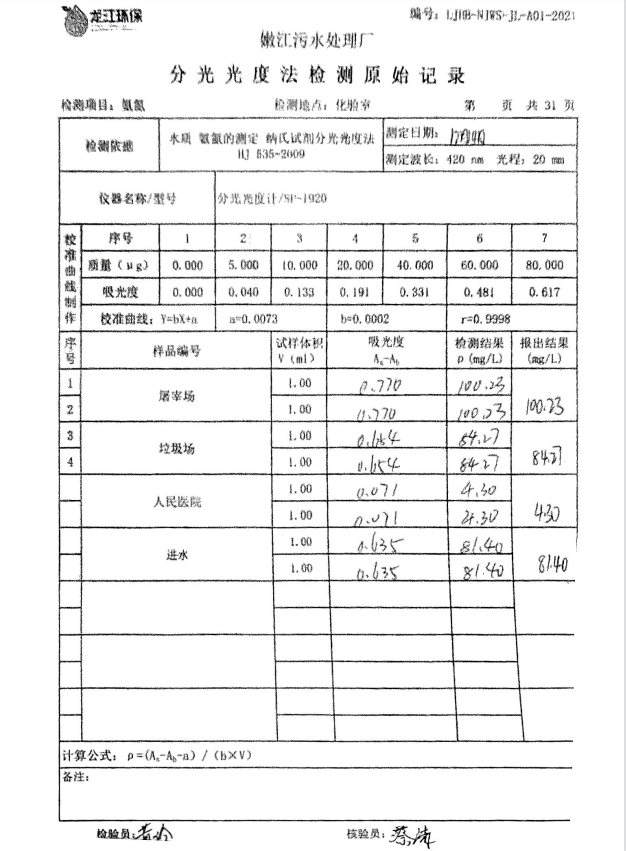 龙江环保
编号：LJHB-NJWS-JL-A01-2021
嫩江污水处理厂
分光光度法检测原始记录
检测项目：氨氮 检测地点：化验室 第 页 共 31 页
检测依据 水质 氨氮的测定 纳氏试剂分光光度法 HJ 535-2009 测定日期：
测定波长：420 nm 光程：20 mm
仪器名称/型号 分光光度计/SP-1920
校准曲线制作
序号 1 2 3 4 5 6 7
质量（μg） 0.000 5.000 10.000 20.000 40.000 60.000 80.000
吸光度 0.000 0.040 0.133 0.191 0.331 0.481 0.617
校准曲线：Y=bX+a a=0.0073 b=0.0002 r=0.9998
序号 样品编号 试样体积 V（ml） 吸光度 As-Ab 检测结果 ρ(mg/L) 报出结果 (mg/L)
1 屠宰场 1.00 0.770 100.23 100.23
2 1.00 0.770 100.23
3 垃圾场 1.00 84.27 84.27
4 1.00 0.654 84.27
人民医院 1.00 0.071 4.30 4.30
1.00 0.071
进水 1.00 0.635 81.40 81.40
1.00 0.635 81.40
计算公式：ρ=(As-Ab-a) / (b×V)
备注：
检验员： 核验员：蔡